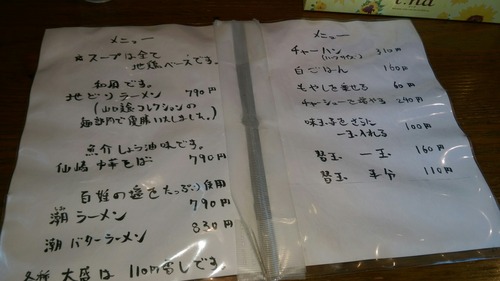 メニュー
☆スープは全て
地鶏ベースです。
和風です。
地どりラーメン 790円
(山口麺コレクションの
麺部門で優勝いたしました。)
魚介しょう油味です。
仙崎中華そば 790円
百姓の塩をたっぷり使用
潮ラーメン 790円
潮バターラーメン 830円
各種 大盛は 110円増しです
メニュー
チャーハン 310円
白ごはん 160円
もやしを乗せる 60円
チャーシューを増やす 240円
味玉子をさらに
一玉入れる 100円
替玉 一玉 160円
替玉 半分 110円